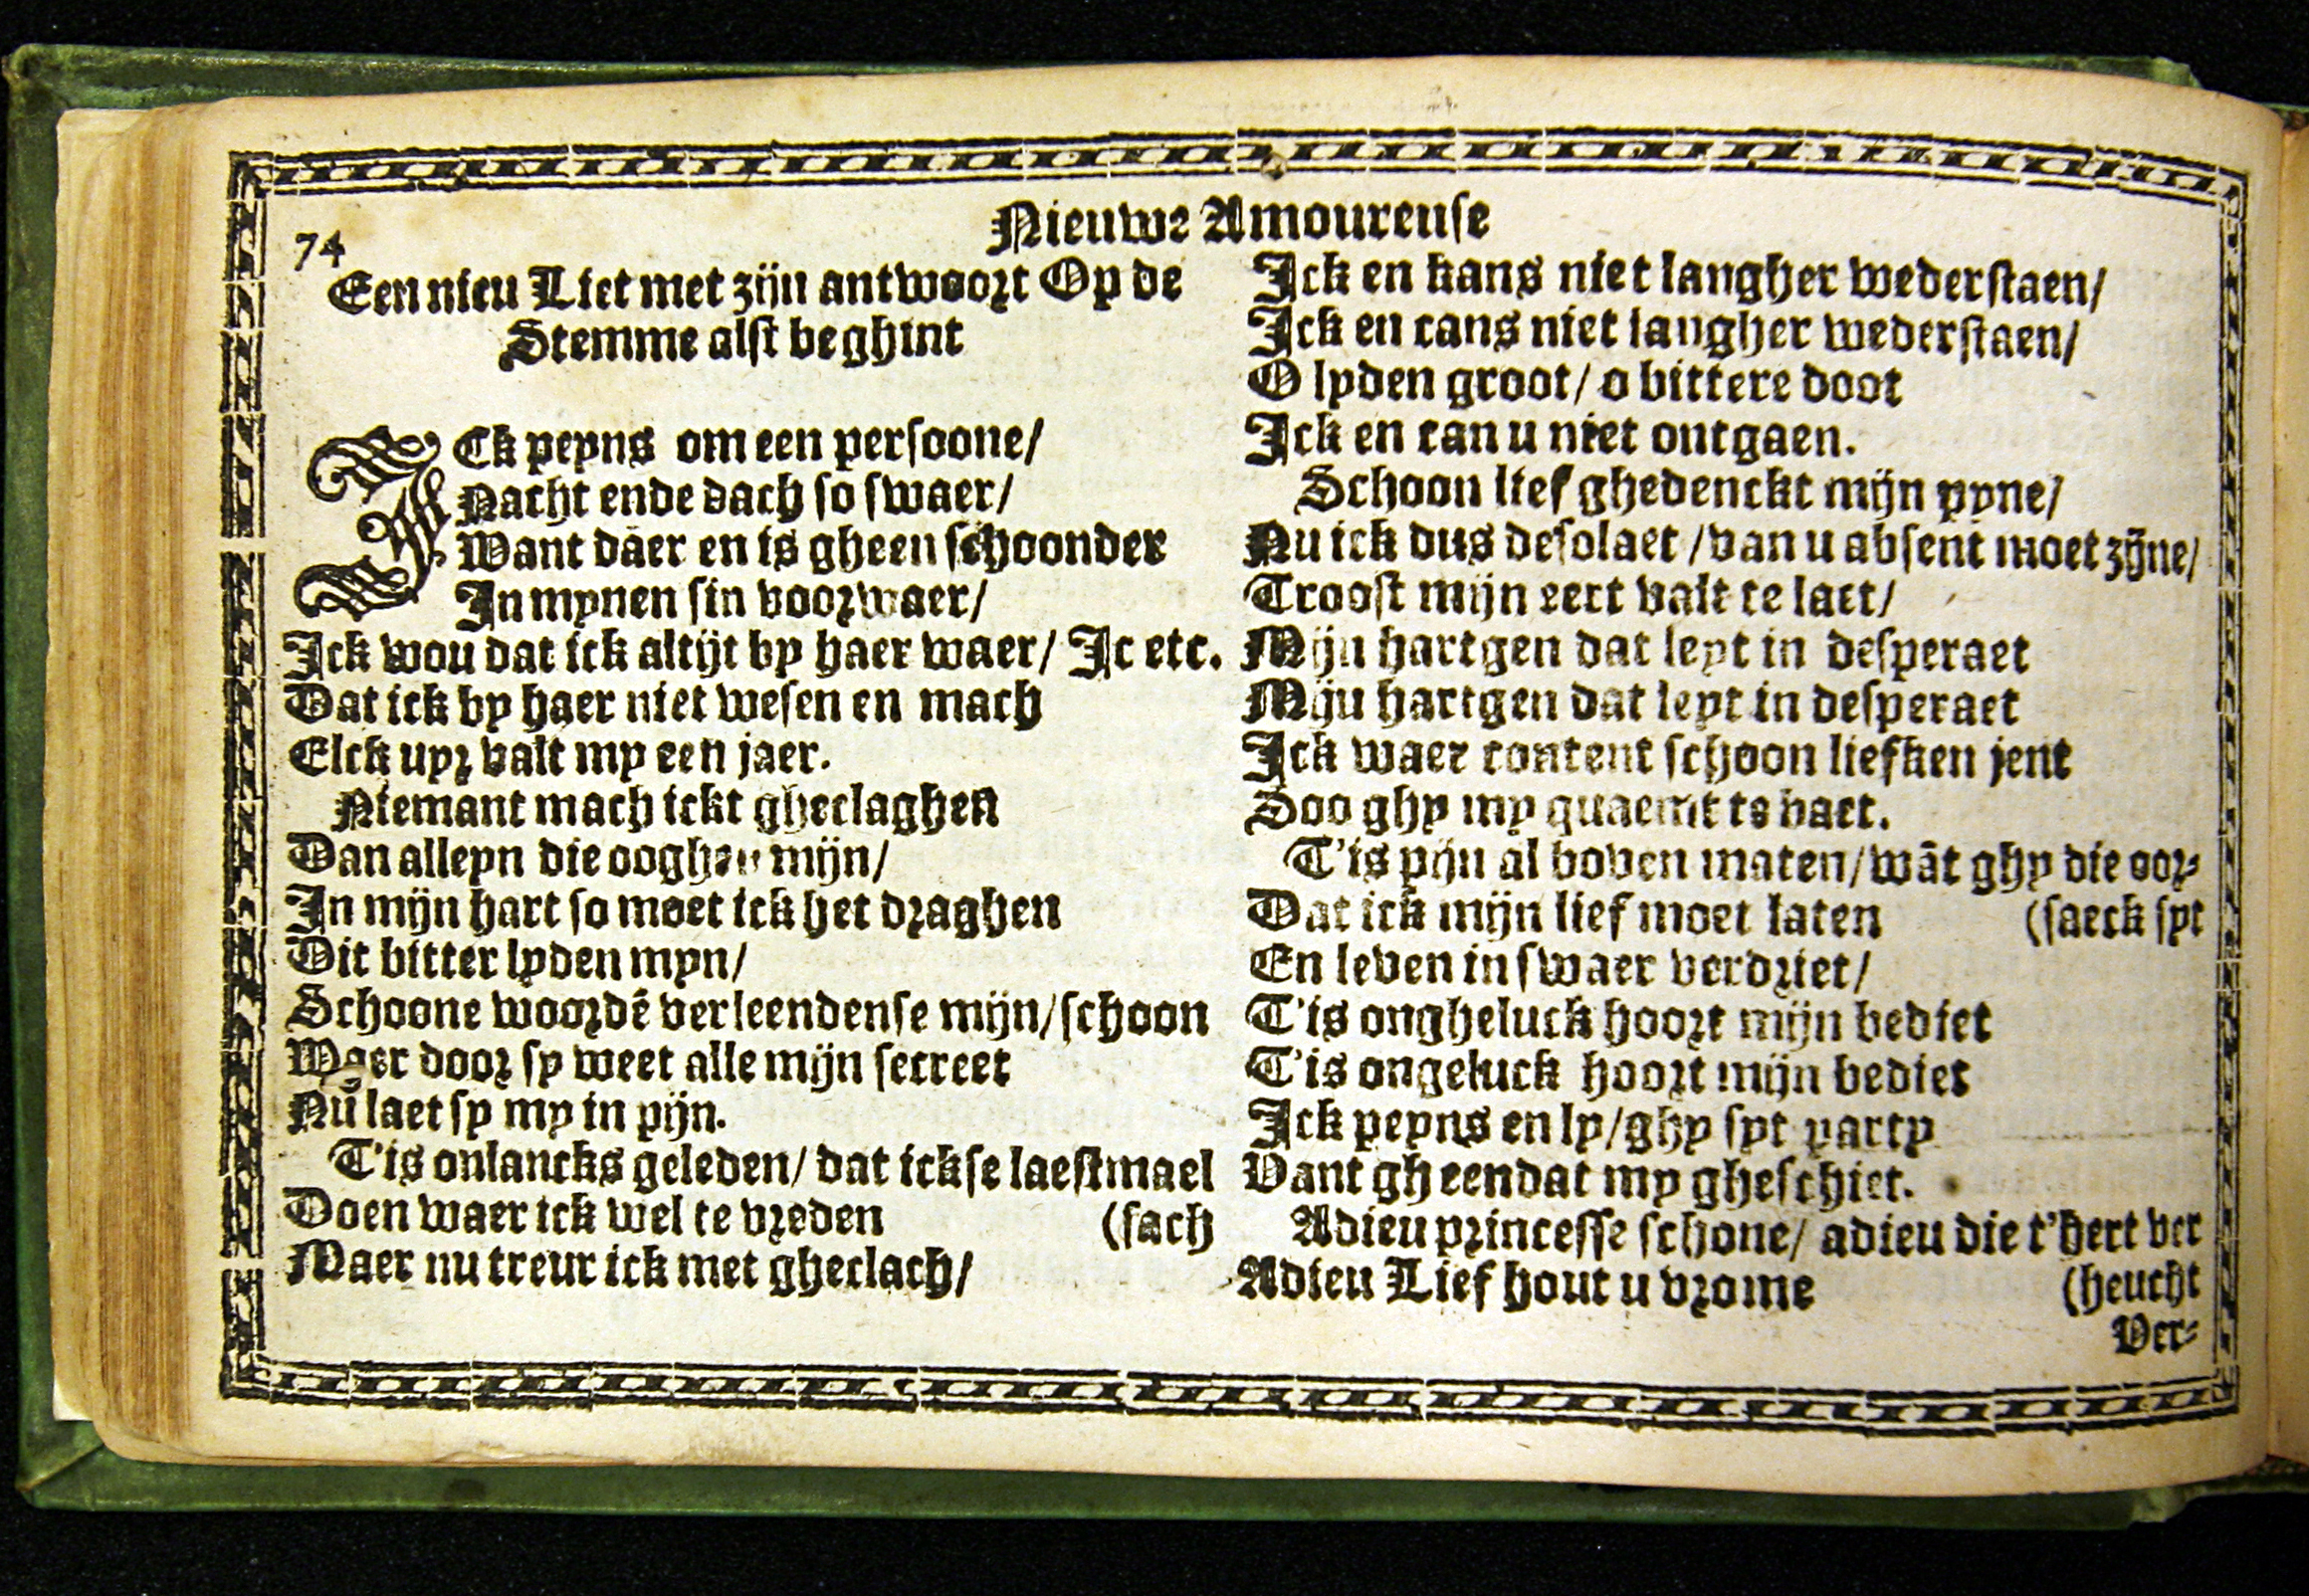 Nieuwe Amoureuse
74
Een nieu Liet met zijn antwoort Op de
Stemme alst beghint
ICk peyns om een persoone/
Nacht ende dach so swaer/
Want daer en is gheen schoonder
In mynen sin voorwaer/
Ick wou dat ick altijt by haer waer/ Ic etc.
Dat ick by haer niet wesen en mach
Elck uyr valt my een jaer.
Niemant mach ickt gheclaghen
Dan alleyn die ooghen mijn/
In mijn hart so moet ick het draghen
Dit bitter lyden myn/
Schoone woordē verleendense mijn/schoon
Waer door sy weet alle mijn secreet
Nu laet sy my in pijn.
T'is onlancks geleden/ dat ickse laestmael
Doen waer ick wel te vreden (sach
Maer nu treur ick met gheclach/
Ick en kans niet langher wederstaen/
Ick en cans niet langher wederstaen/
O lyden groot/ o bittere doot
Ick en can u niet ontgaen.
Schoon lief ghedenckt mijn pyne/
Nu ick dus desolaet /van u absent moet zijne/
Troost mijn eert valt te laet/
Mijn hartgen dat leyt in desperaet
Miju hartgen dat leyt in desperaet
Ick waer content schoon liefken jent
Soo ghy my quaemt te baet.
T'is pijn al boven maten/wāt ghy die oor-
Dat ick mijn lief moet laten (saeck syt
En leven in swaer verdriet/
T'is ongheluck hoort mijn bediet
T'is ongeluck hoort mijn bediet
Ick peyns en ly/ghy syt party
Vant gheendat my gheschiet.
Adieu princesse schone/ adieu die t'hert ver
Adieu Lief hout u vrome (heucht
Ver-